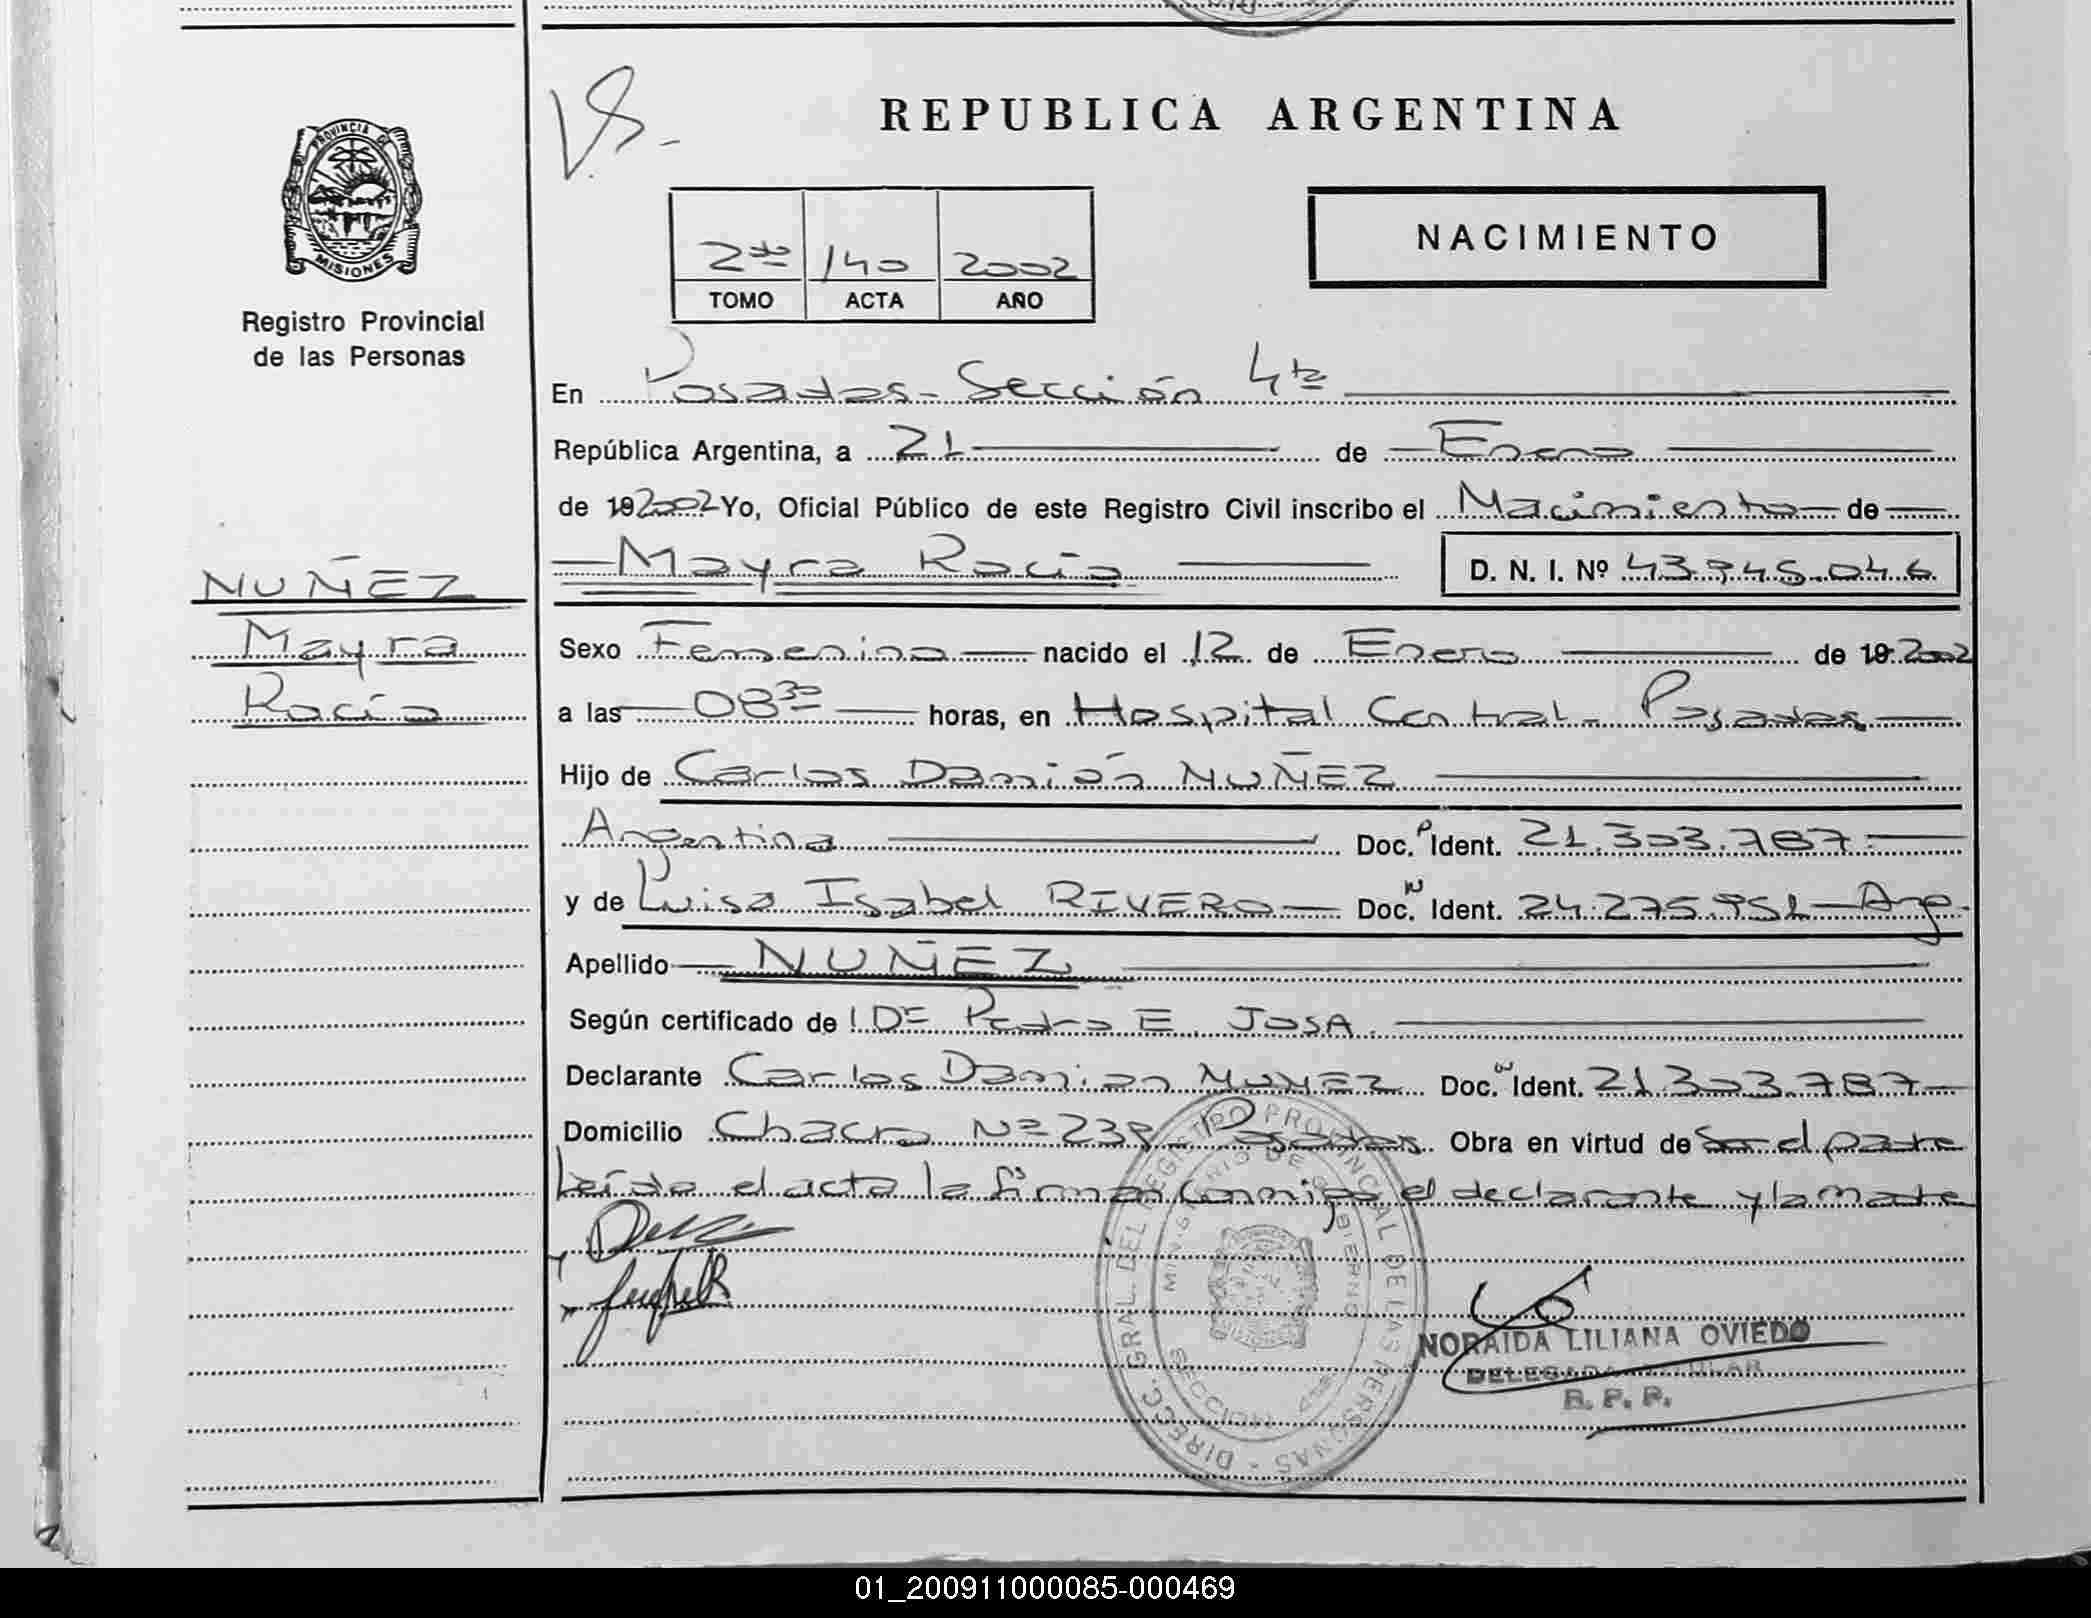 PROVINCIA DE
MISIONES
Registro Provincial
de las Personas
NUÑEZ
Mayra
Rocío
REPUBLICA ARGENTINA
NACIMIENTO
2do 140 2002
TOMO ACTA AÑO
En Posadas - Sección 4ta
República Argentina, a 21 de Enero
de 192002 Yo, Oficial Público de este Registro Civil inscribo el Nacimiento de
Mayra Rocío D. N. I. Nº 43.945.046
Sexo Femenino nacido el 12 de Enero de 19 2002
a las 08 30 horas, en Hospital Central - Posadas
Hijo de Carlos Damián NUÑEZ
Argentina Doc. Ident. 21.303.787
y de Luisa Isabel RIVERO Doc. Ident. 24.275.951 Arg.
Apellido NUÑEZ
Según certificado de Pedro E. JOSA.
Declarante Carlos Damian NUÑEZ Doc. Ident. 21.303.787
Domicilio Chacra Nº 239 Posadas. Obra en virtud de Ser el padre
Leída el acta la firman conmigo el declarante y la madre
DIRECC. GRAL. DEL REGISTRO PROVINCIAL DE LAS PERSONAS
MINISTERIO DE GOBIERNO
SECCION 4ta
NORAIDA LILIANA OVIEDO
DELEGADA TITULAR
R. P. P.
01_200911000085-000469